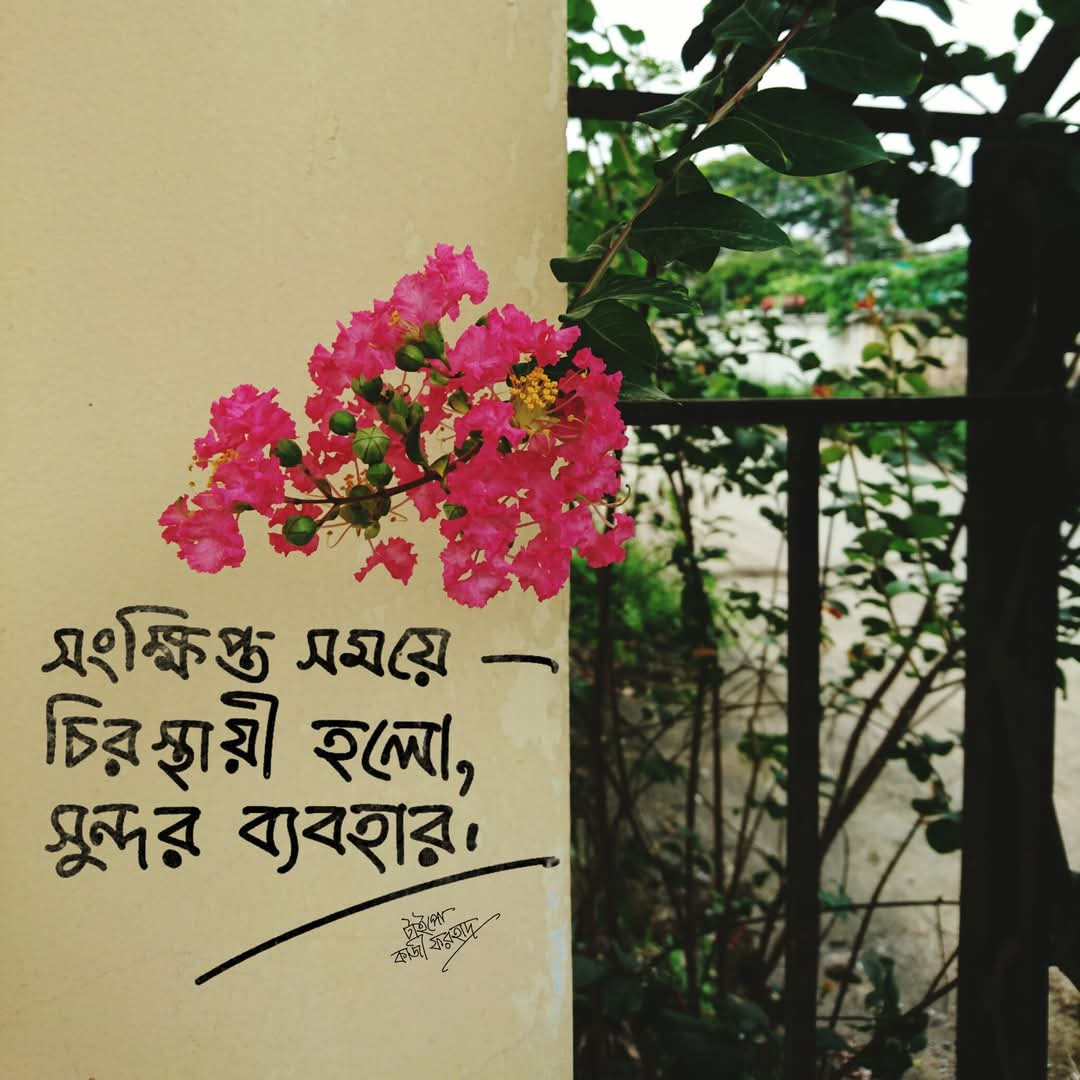 সংক্ষিপ্ত সময়ে —
চিরস্থায়ী হলো,
সুন্দর ব্যবহার।
টাইপো
কাজী ফরহাদ